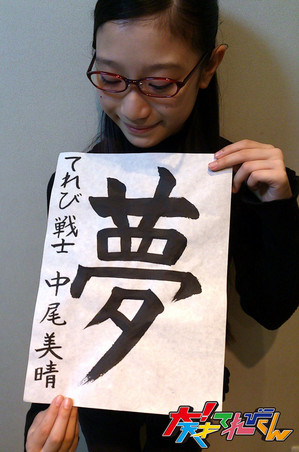 夢
てれび戦士 中尾美晴
大!天才てれびくん